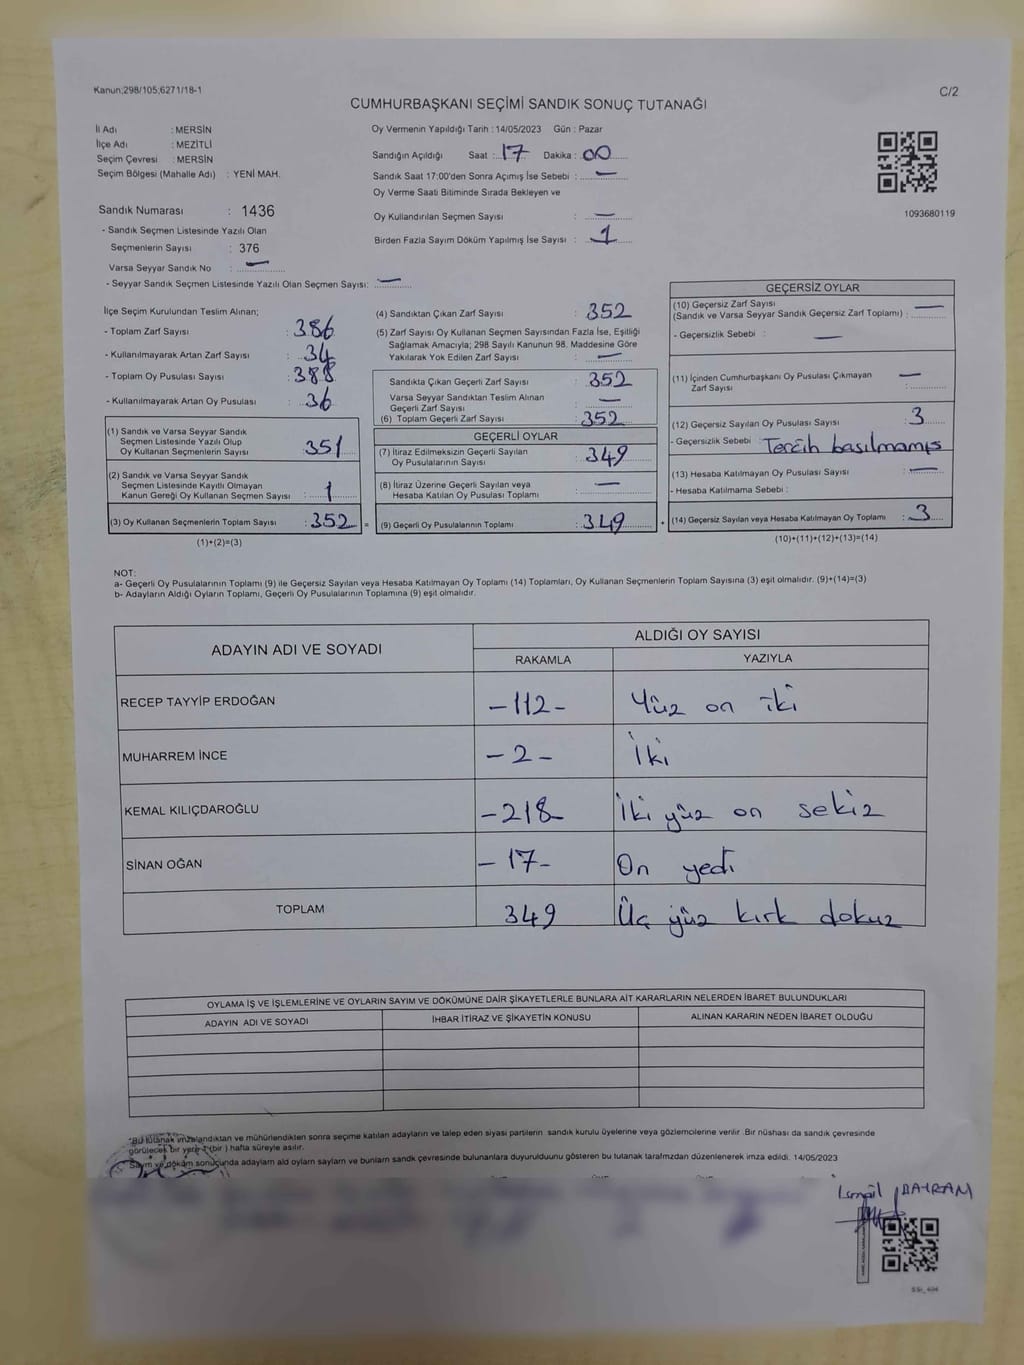 Kanun;298/105;6271/18-1
C/2
CUMHURBAŞKANI SEÇİMİ SANDIK SONUÇ TUTANAĞI
İl Adı : MERSİN
İlçe Adı : MEZİTLİ
Seçim Çevresi : MERSİN
Seçim Bölgesi (Mahalle Adı) : YENİ MAH.
Oy Vermenin Yapıldığı Tarih : 14/05/2023 Gün : Pazar
Sandığın Açıldığı Saat : 17 Dakika : 00
Sandık Saat 17:00'den Sonra Açımış İse Sebebi : —
Oy Verme Saati Bitiminde Sırada Bekleyen ve
Oy Kullandırılan Seçmen Sayısı : —
Birden Fazla Sayım Döküm Yapılmış İse Sayısı : 1
1093680119
Sandık Numarası : 1436
- Sandık Seçmen Listesinde Yazılı Olan
Seçmenlerin Sayısı : 376
Varsa Seyyar Sandık No : —
- Seyyar Sandık Seçmen Listesinde Yazılı Olan Seçmen Sayısı: —
İlçe Seçim Kurulundan Teslim Alınan;
- Toplam Zarf Sayısı : 386
- Kullanılmayarak Artan Zarf Sayısı : 34
- Toplam Oy Pusulası Sayısı : 388
- Kullanılmayarak Artan Oy Pusulası : 36
(1) Sandık ve Varsa Seyyar Sandık
Seçmen Listesinde Yazılı Olup
Oy Kullanan Seçmenlerin Sayısı : 351
(2) Sandık ve Varsa Seyyar Sandık
Seçmen Listesinde Kayıtlı Olmayan
Kanun Gereği Oy Kullanan Seçmen Sayısı : 1
(3) Oy Kullanan Seçmenlerin Toplam Sayısı : 352 =
(1)+(2)=(3)
(4) Sandıktan Çıkan Zarf Sayısı : 352
(5) Zarf Sayısı Oy Kullanan Seçmen Sayısından Fazla İse, Eşitliği
Sağlamak Amacıyla; 298 Sayılı Kanunun 98. Maddesine Göre
Yakılarak Yok Edilen Zarf Sayısı : —
Sandıkta Çıkan Geçerli Zarf Sayısı : 352
Varsa Seyyar Sandıktan Teslim Alınan
Geçerli Zarf Sayısı : —
(6) Toplam Geçerli Zarf Sayısı : 352
GEÇERLİ OYLAR
(7) İtiraz Edilmeksizin Geçerli Sayılan
Oy Pusulalarının Sayısı : 349
(8) İtiraz Üzerine Geçerli Sayılan veya
Hesaba Katılan Oy Pusulası Toplamı : —
(9) Geçerli Oy Pusulalarının Toplamı : 349 +
GEÇERSİZ OYLAR
(10) Geçersiz Zarf Sayısı
(Sandık ve Varsa Seyyar Sandık Geçersiz Zarf Toplamı) : —
- Geçersizlik Sebebi : —
(11) İçinden Cumhurbaşkanı Oy Pusulası Çıkmayan
Zarf Sayısı : —
(12) Geçersiz Sayılan Oy Pusulası Sayısı : 3
- Geçersizlik Sebebi : Tercih basılmamış
(13) Hesaba Katılmayan Oy Pusulası Sayısı : —
- Hesaba Katılmama Sebebi :
(14) Geçersiz Sayılan veya Hesaba Katılmayan Oy Toplamı : 3
(10)+(11)+(12)+(13)=(14)
NOT:
a- Geçerli Oy Pusulalarının Toplamı (9) ile Geçersiz Sayılan veya Hesaba Katılmayan Oy Toplamı (14) Toplamları, Oy Kullanan Seçmenlerin Toplam Sayısına (3) eşit olmalıdır. (9)+(14)=(3)
b- Adayların Aldığı Oyların Toplamı, Geçerli Oy Pusulalarının Toplamına (9) eşit olmalıdır.
ADAYIN ADI VE SOYADI
ALDIĞI OY SAYISI
RAKAMLA YAZIYLA
RECEP TAYYİP ERDOĞAN -112- Yüz on iki
MUHARREM İNCE -2- İki
KEMAL KILIÇDAROĞLU -218- İki yüz on sekiz
SİNAN OĞAN -17- On yedi
TOPLAM 349 Üç yüz kırk dokuz
OYLAMA İŞ VE İŞLEMLERİNE VE OYLARIN SAYIM VE DÖKÜMÜNE DAİR ŞİKAYETLERLE BUNLARA AİT KARARLARIN NELERDEN İBARET BULUNDUKLARI
ADAYIN ADI VE SOYADI İHBAR İTİRAZ VE ŞİKAYETİN KONUSU ALINAN KARARIN NEDEN İBARET OLDUĞU
*Bu tutanak imzalandıktan ve mühürlendikten sonra seçime katılan adayların ve talep eden siyasi partilerin sandık kurulu üyelerine veya gözlemcilerine verilir .Bir nüshası da sandık çevresinde
görülecek bir yere 1 (bir ) hafta süreyle asılır.
Sayım ve dökäm sonuçunda adaylarn ald oylarn saylarn ve bunlarn sandk çevresinde bulunanlara duyurulduunu gösteren bu tutanak tarafmzdan düzenlenerek imza edildi. 14/05/2023
İsmail BAYRAM